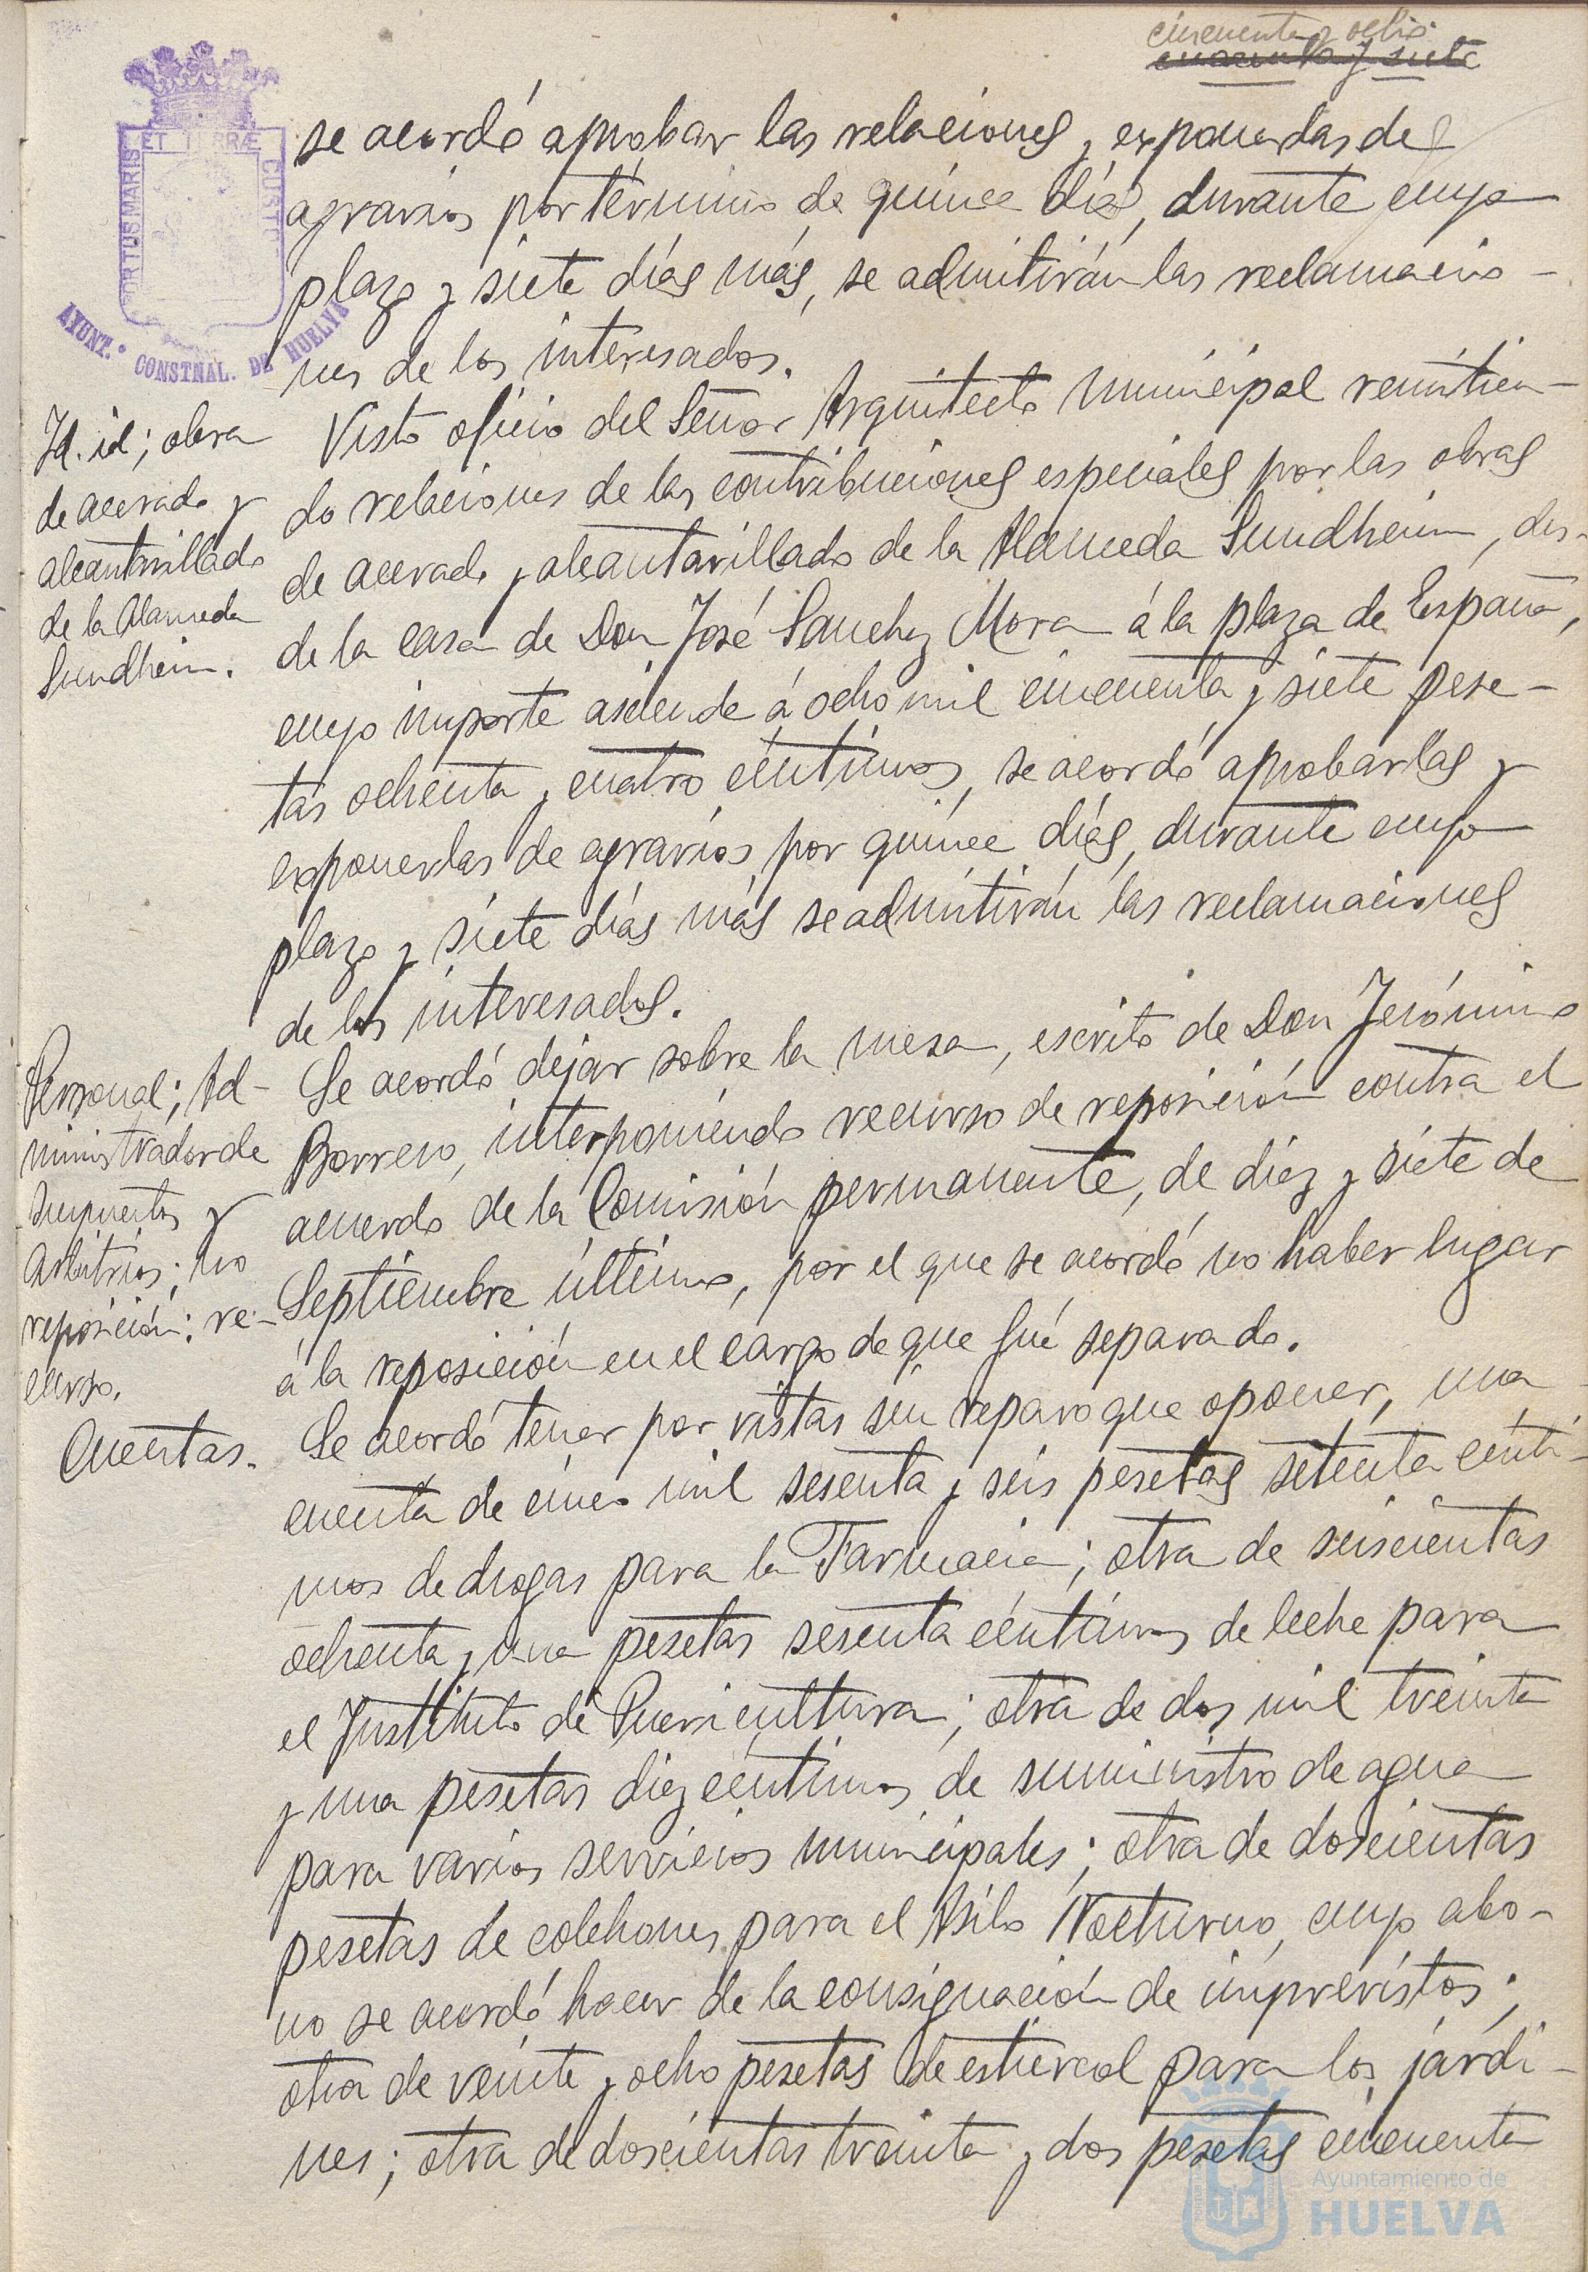 cincuenta y ocho
cuarenta y siete
PORTUS MARIS ET TERRÆ CUSTO
AYUNT.º CONSTNAL. DE HUELVA
se acordó aprobar las relaciones y exponerlas de
agravios por término de quince días, durante cuyo
plazo y siete días más, se admitirán las reclamacio-
nes de los interesados.
Id. id; obra
de acerado y
alcantarillado
de la Alameda
Sundheim.
Visto oficio del Señor Arquitecto Municipal remitien-
do relaciones de las contribuciones especiales por las obras
de acerado y alcantarillado de la Alameda Sundheim, des-
de la casa de Don José Sanchez Mora á la plaza de España,
cuyo importe asciende á ocho mil cincuenta y siete pese-
tas ochenta y cuatro céntimos, se acordó aprobarlas y
exponerlas de agravios por quince días, durante cuyo
plazo y siete días más se admitirán las reclamaciones
de los interesados.
Personal; Ad-
ministrador de
Impuestos y
Arbitrios; no
reposición; re-
curso.
Se acordó dejar sobre la mesa, escrito de Don Jerónimo
Borrero, interponiendo recurso de reposición contra el
acuerdo de la Comisión permanente, de diez y siete de
Septiembre último, por el que se acordó no haber lugar
á la reposición en el cargo de que fué separado.
Cuentas.
Se acordó tener por vistas sin reparo que oponer, una
cuenta de cinco mil sesenta y seis pesetas setenta cénti-
mos de drogas para la Farmacia; otra de seiscientas
ochenta y una pesetas sesenta céntimos de leche para
el Instituto de Puericultura; otra de dos mil treinta
y una pesetas diez céntimos de suministro de agua
para varios servicios municipales; otra de doscientas
pesetas de colchones para el Asilo Nocturno, cuyo abo-
no se acordó hacer de la consignación de imprevistos;
otra de veinte y ocho pesetas de estiercol para los jardi-
nes; otra de doscientas treinta y dos pesetas cincuenta
Ayuntamiento de
HUELVA